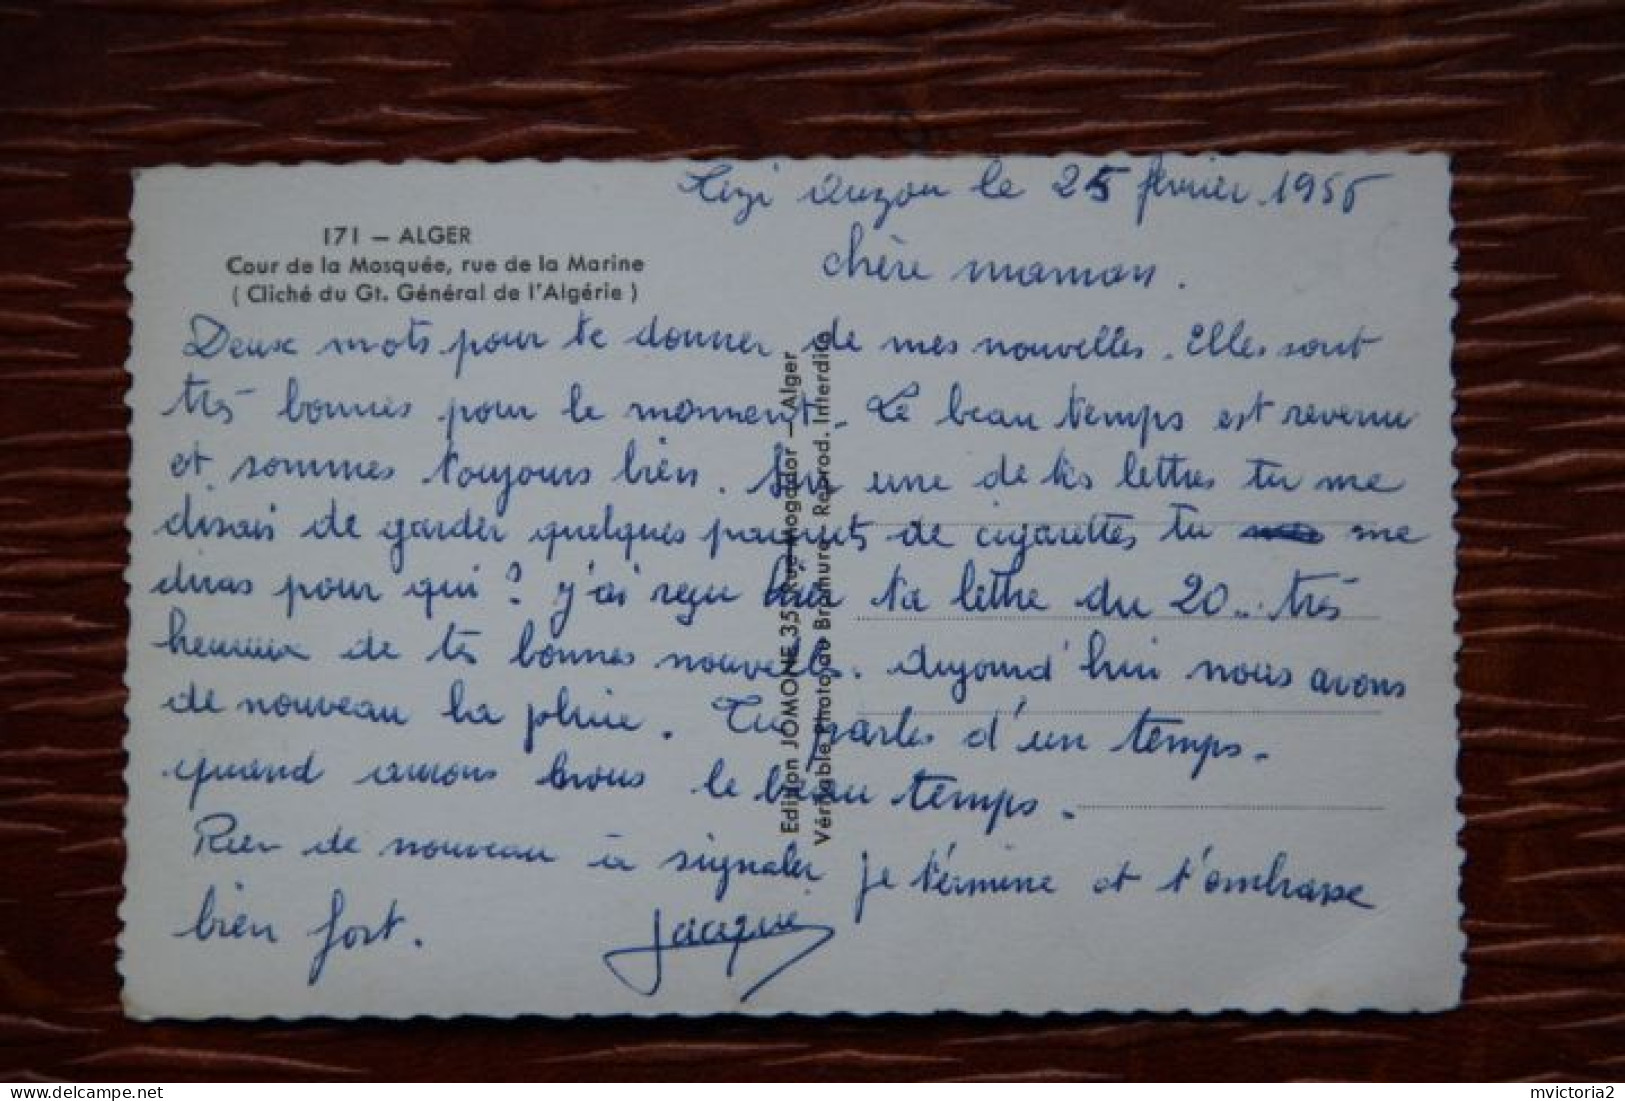 Tizi Ouzou le 25 février 1956
171 — ALGER
Cour de la Mosquée, rue de la Marine
( Cliché du Gt. Général de l'Algérie )
chère maman.
Deux mots pour te donner de mes nouvelles. Elles sont
très bonnes pour le moment. Le beau temps est revenu
et sommes toujours bien. Sur une de tes lettres tu me
disais de garder quelques paquets de cigarettes tu me
diras pour qui ? j'ai reçu hier ta lettre du 20... très
heureux de tes bonnes nouvelles. Aujourd'hui nous avons
de nouveau la pluie. Tu parles d'un temps.
quand aurons nous le beau temps.
Rien de nouveau à signaler je termine et t'embrasse
bien fort.
Jacques
Edition JOMONE 35, rue Mogador — Alger
Véritable Photo au Bromure - Reprod. Interdite
mvictoria2